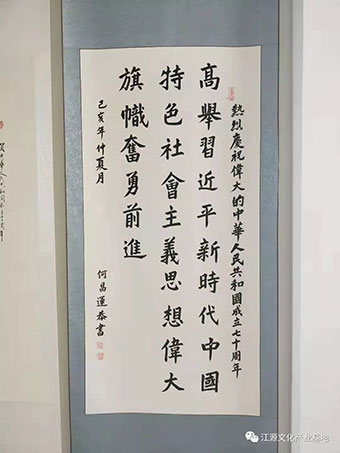 熱烈慶祝偉大的中華人民共和國成立七十周年
高舉習近平新時代中國
特色社會主義思想偉大
旗幟奮勇前進
己亥年仲夏月
何昌運恭書
江源文化产业基地